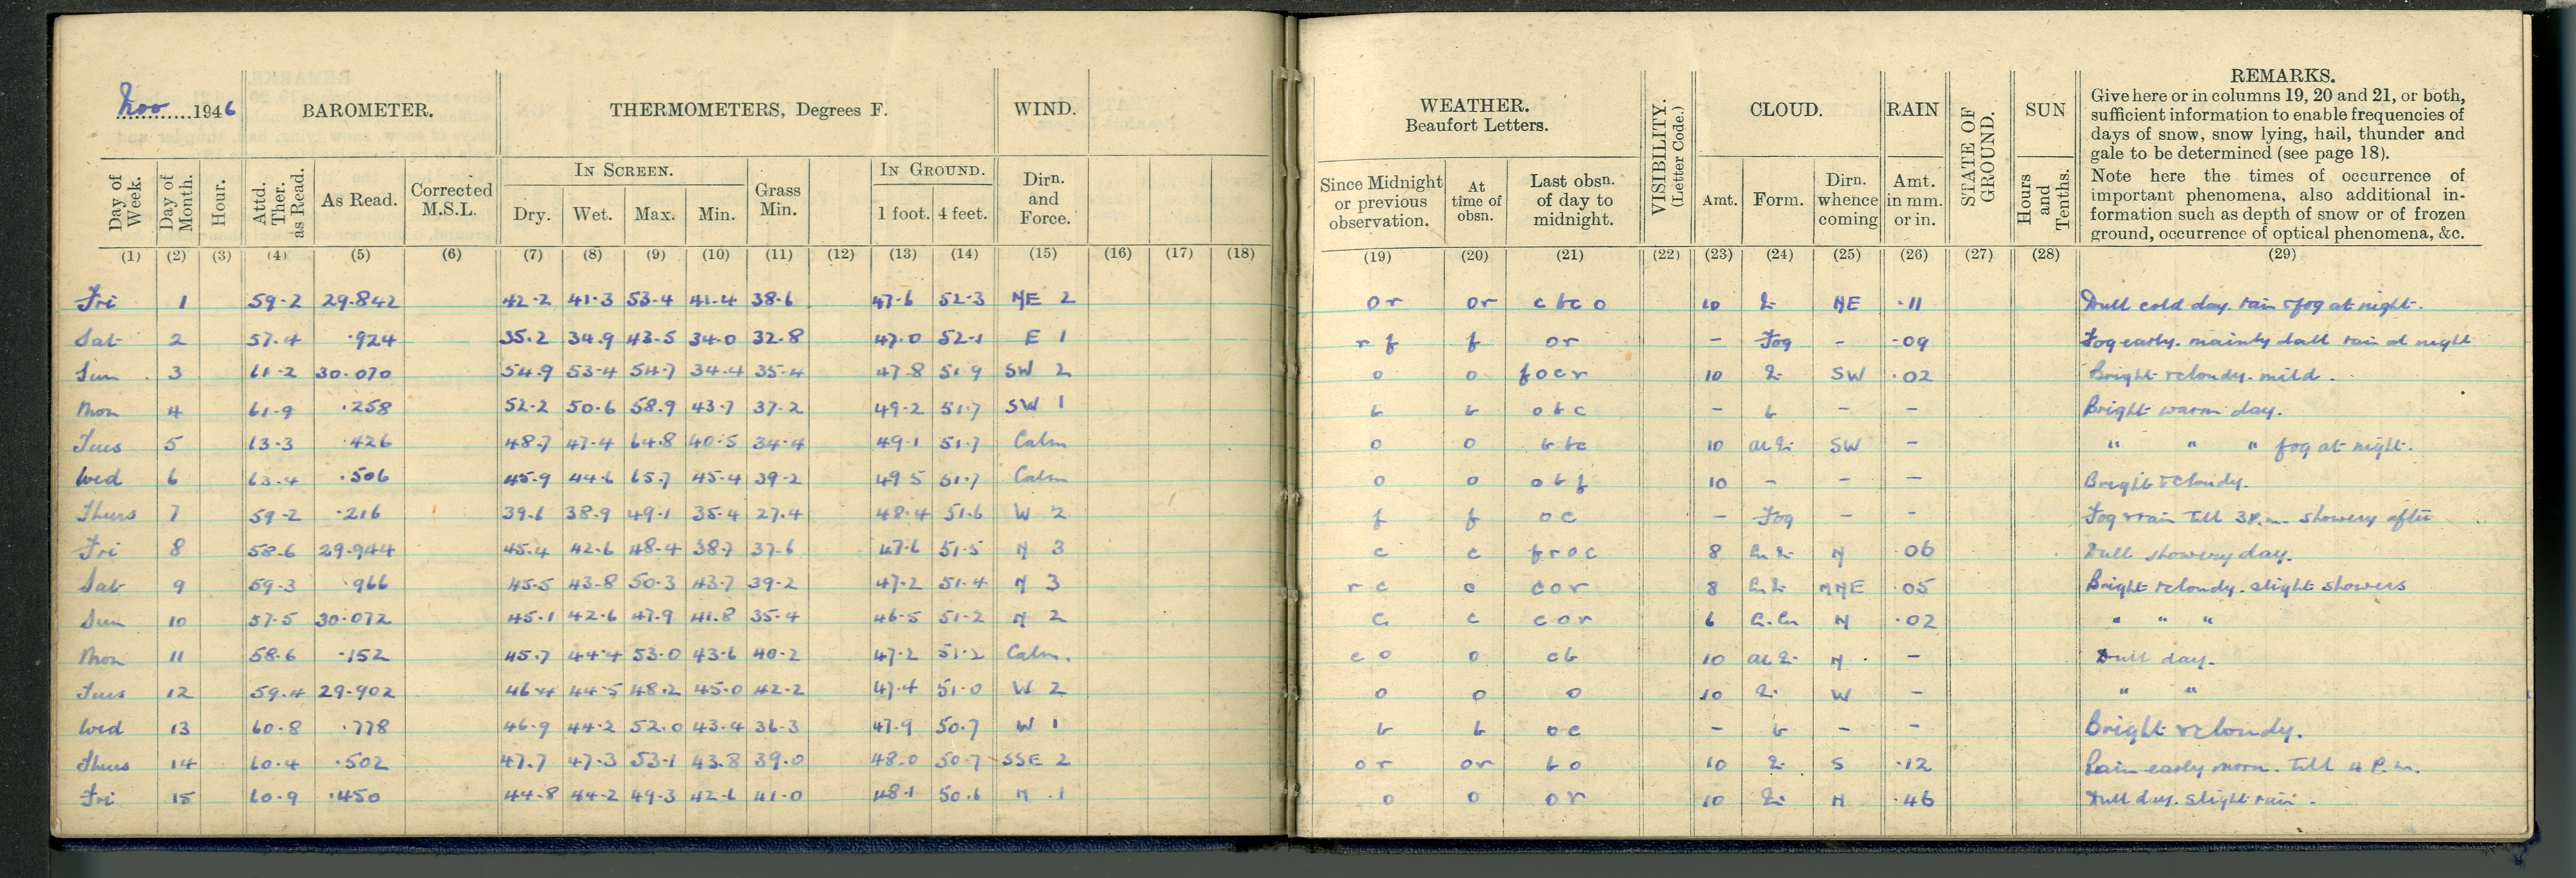 Nov 1946 BAROMETER. THERMOMETERS, Degrees F. WIND.
Day of Week. Day of Month. Hour. Attd. Ther. as Read. As Read. Corrected M.S.L. IN SCREEN. Dry. Wet. Max. Min. Grass Min. IN GROUND. 1 foot. 4 feet. Dirn. and Force.
(1) (2) (3) (4) (5) (6) (7) (8) (9) (10) (11) (12) (13) (14) (15) (16) (17) (18)
Fri 1 59.2 29.842 42.2 41.3 53.4 41.4 38.6 47.6 52.3 NE 2
Sat 2 57.4 .924 35.2 34.9 43.5 34.0 32.8 47.0 52.1 E 1
Sun 3 61.2 30.070 54.9 53.4 54.7 34.4 35.4 47.8 51.9 SW 2
Mon 4 61.9 .258 52.2 50.6 58.9 43.7 37.2 49.2 51.7 SW 1
Tues 5 63.3 .426 48.7 47.4 64.8 40.5 34.4 49.1 51.7 Calm
Wed 6 63.4 .506 45.9 44.6 65.7 45.4 39.2 49.5 51.7 Calm
Thurs 7 59.2 .216 39.6 38.9 49.1 35.4 27.4 48.4 51.6 W 2
Fri 8 58.6 29.944 45.4 42.6 48.4 38.7 37.6 47.6 51.5 N 3
Sat 9 59.3 .966 45.5 43.8 50.3 43.7 39.2 47.2 51.4 N 3
Sun 10 57.5 30.072 45.1 42.6 47.9 41.8 35.4 46.5 51.2 N 2
Mon 11 58.6 .152 45.7 44.4 53.0 43.6 40.2 47.2 51.2 Calm.
Tues 12 59.4 29.902 46.4 44.5 48.2 45.0 42.2 47.4 51.0 W 2
Wed 13 60.8 .778 46.9 44.2 52.0 43.4 36.3 47.9 50.7 W 1
Thurs 14 60.4 .502 47.7 47.3 53.1 43.8 39.0 48.0 50.7 SSE 2
Fri 15 60.9 .450 44.8 44.2 49.3 42.6 41.0 48.1 50.6 N 1
WEATHER. Beaufort Letters. VISIBILITY. (Letter Code.) CLOUD. RAIN STATE OF GROUND. SUN REMARKS.
Since Midnight or previous observation. At time of obsn. Last obsn. of day to midnight. Amt. Form. Dirn. whence coming Amt. in mm. or in. Hours and Tenths.
Give here or in columns 19, 20 and 21, or both,
sufficient information to enable frequencies of
days of snow, snow lying, hail, thunder and
gale to be determined (see page 18).
Note here the times of occurrence of
important phenomena, also additional in-
formation such as depth of snow or of frozen
ground, occurrence of optical phenomena, &c.
(19) (20) (21) (22) (23) (24) (25) (26) (27) (28) (29)
or or c bc o 10 NE .11 Dull cold day. rain & fog at night.
r f f or - Fog - .09 Fog early. mainly dull rain at night
o o f o c r 10 SW .02 Bright & cloudy. mild.
b b o b c - b - - Bright warm day.
o o b bc 10 SW - " " " fog at night.
o o o b f 10 - - - Bright & cloudy.
f f o c - Fog - - Fog & rain till 3 P.m. showery after
c c f r o c 8 N .06 Dull showery day.
r c o c o r 8 NNE .05 Bright & cloudy. slight showers
c c c o r 6 N .02 " " "
c o o c b 10 N - Dull day.
o o o 10 W - " "
b b o c - b - - Bright & cloudy.
or or b o 10 S .12 Rain early morn. Till 4 P.m.
o o o r 10 N .46 Dull day. slight rain.